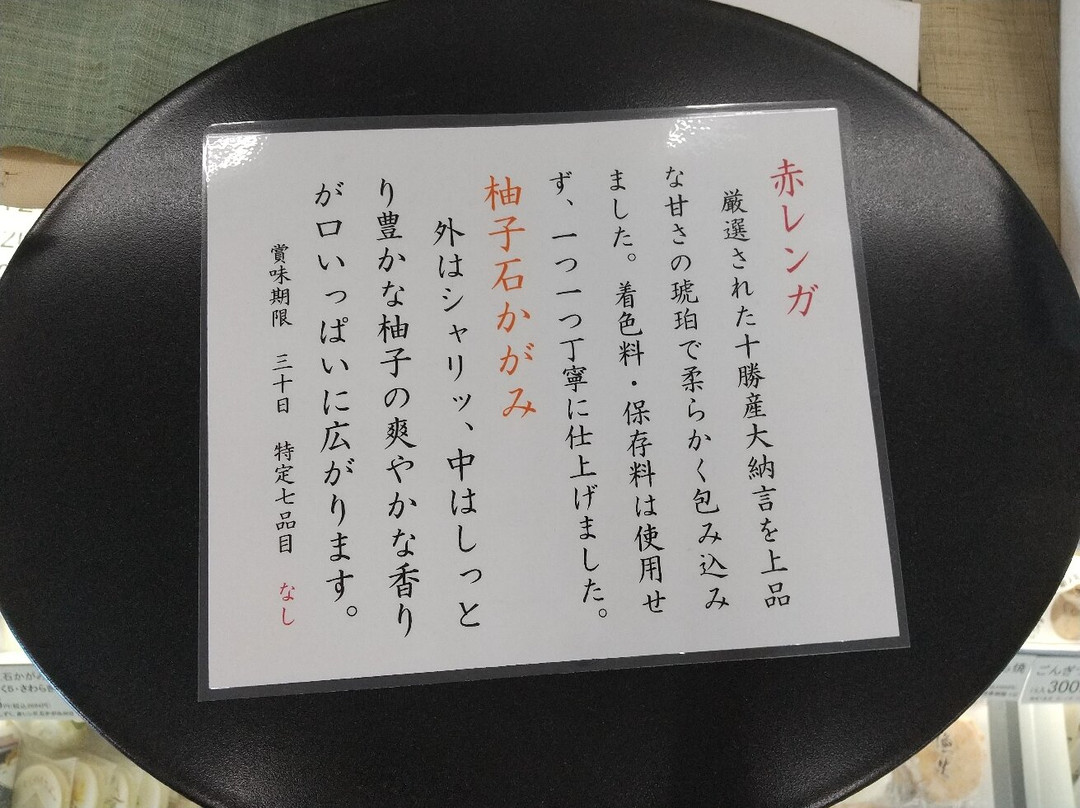 赤レンガ
厳選された十勝産大納言を上品
な甘さの琥珀で柔らかく包み込み
ました。着色料・保存料は使用せ
ず、一つ一つ丁寧に仕上げました。
柚子石かがみ
外はシャリッ、中はしっと
り豊かな柚子の爽やかな香り
が口いっぱいに広がります。
賞味期限 三十日 特定七品目 なし
石かがみ
くら・さわら
ごんぎ
300